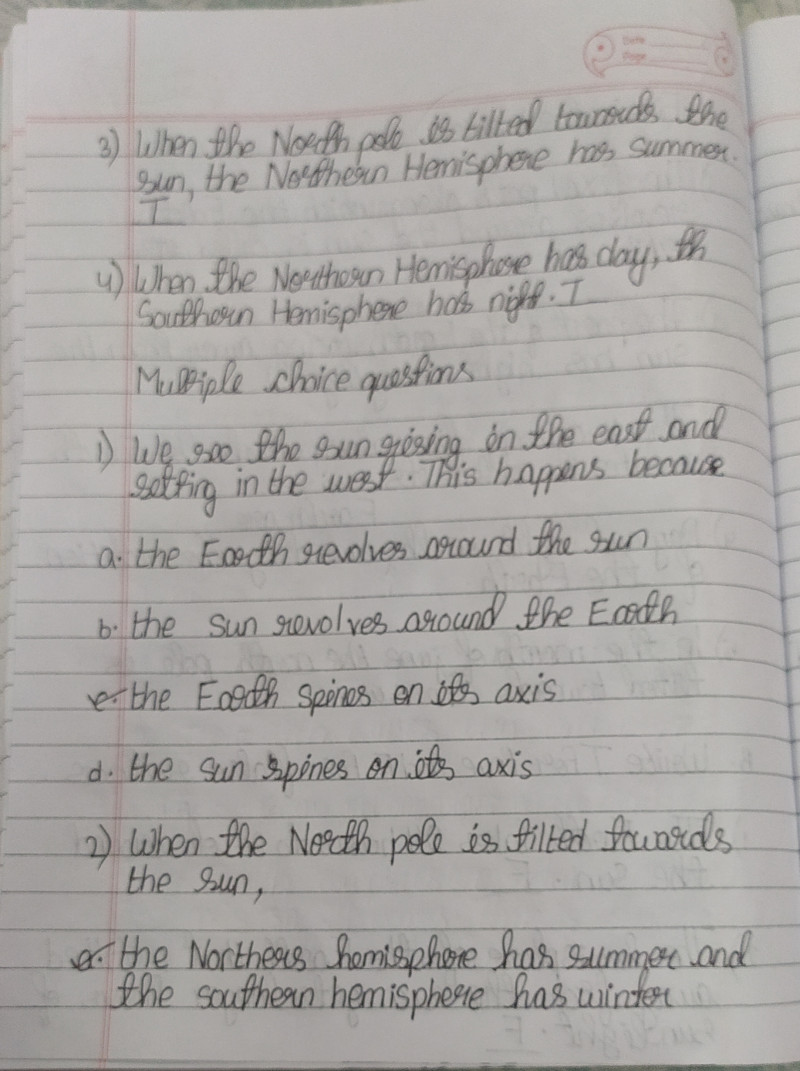 Date
Page
3) When the North pole is tilted towards the
sun, the Northern Hemisphere has summer.
T
4) When the Northern Hemisphere has day, th
Southern Hemisphere has night. T
Multiple choice questions
1) We see the sun rising in the east and
setting in the west. This happens because
a. the Earth revolves around the sun
b. the sun revolves around the Earth
c. the Earth spines on its axis
d. the sun spines on its axis
2) When the North pole is tilted towards
the sun,
a. the Northern hemisphere has summer and
the southern hemisphere has winter